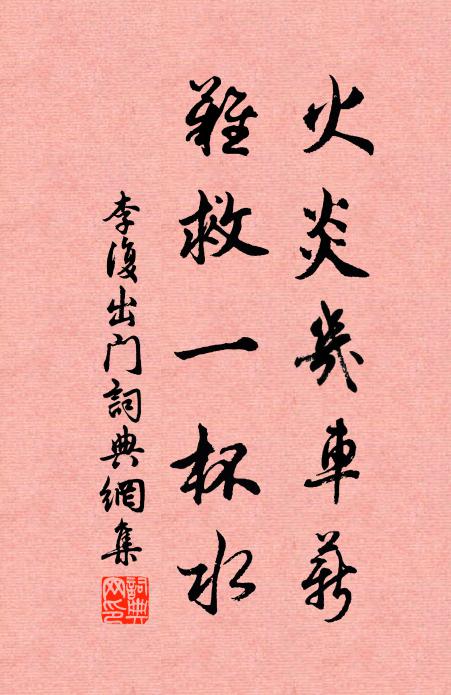 火炎幾車薪
難救一杯水
李復出門詞典網集
詞典網印